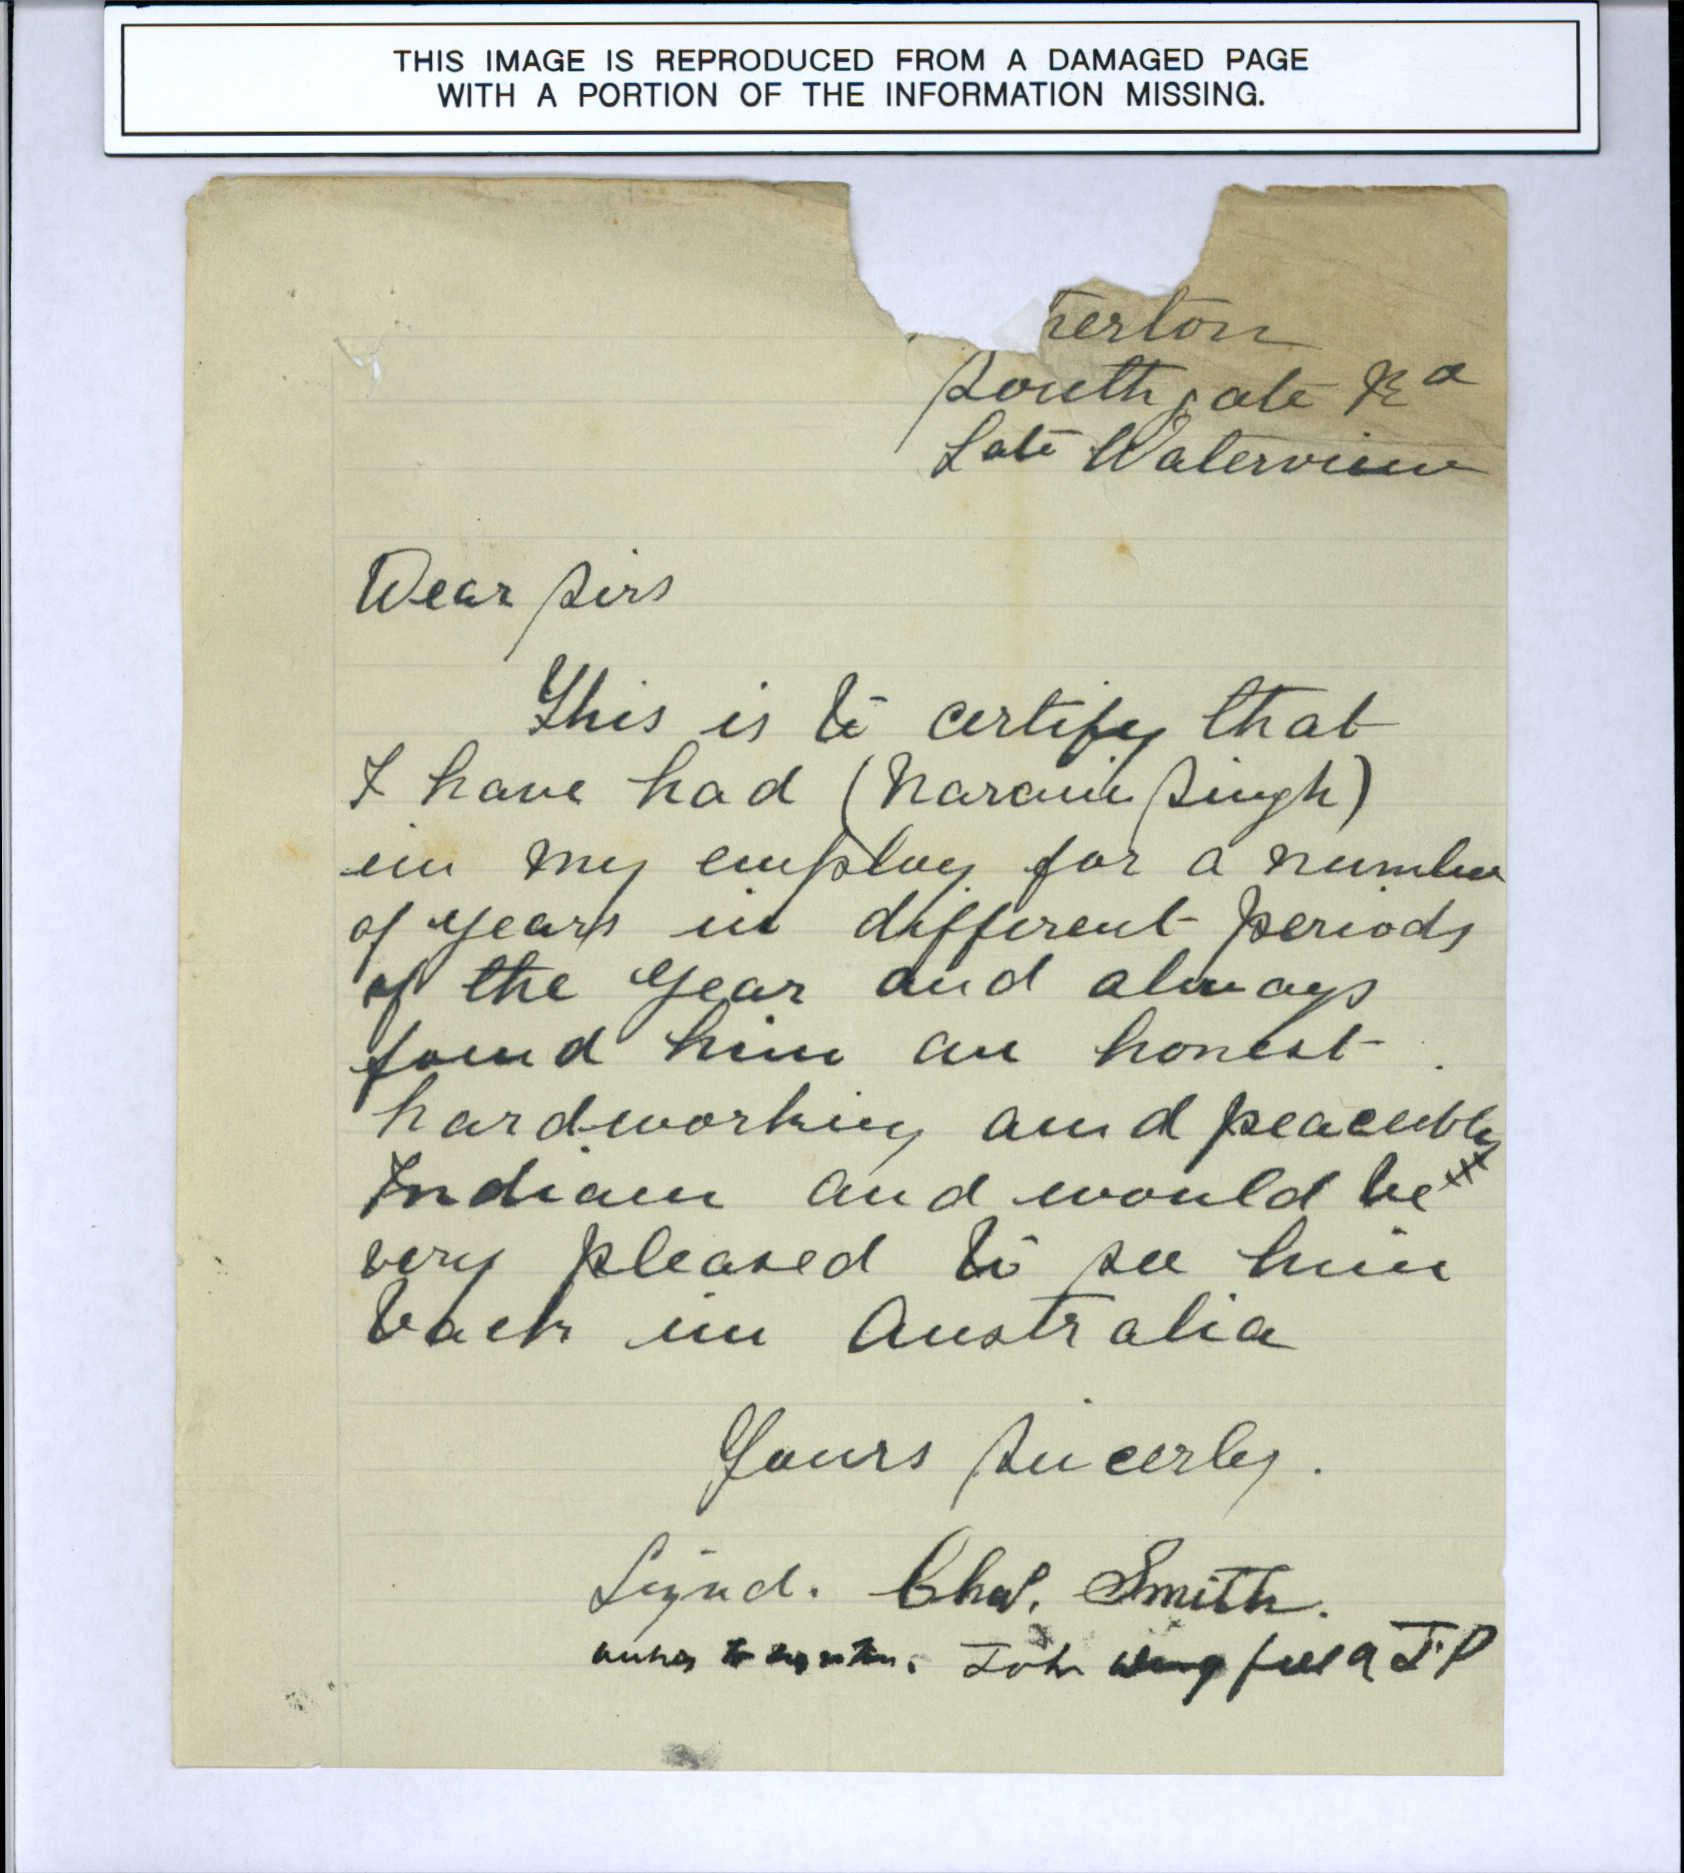 THIS IMAGE IS REPRODUCED FROM A DAMAGED PAGE
WITH A PORTION OF THE INFORMATION MISSING.
herton
Southgate Rd
Late Waterview
Dear Sirs
This is to certify that
I have had (Narain Singh)
in my employ for a number
of years in different periods
of the year and always
found him an honest
hardworking and peacebly
Indian and would be
very pleased to see him
back in Australia
Yours Sincerly.
Signd. Chas. Smith.
witness to signature. John Wingfield JP